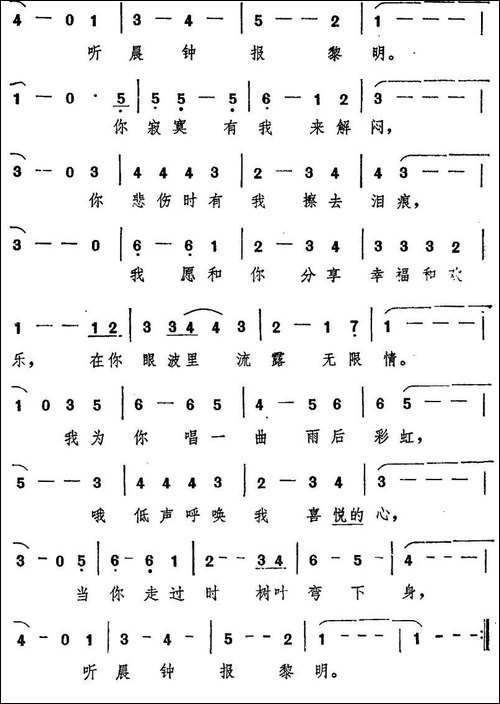 4 — 0 1 | 3 — 4 — | 5 — — 2 | 1 — — — |
听 晨 钟 报 黎 明。
1 — 0 · 5 | 5 5 — 5 | 6 — 1 2 | 3 — — — |
你 寂 寞 有 我 来 解 闷，
3 — 0 3 | 4 4 4 3 | 2 — 3 4 | 3 — — — |
你 悲 伤 时 有 我 擦 去 泪 痕，
3 — — 0 | 6 — 6 1 | 2 — 3 4 | 3 3 3 2 |
我 愿 和 你 分 享 幸 福 和 欢
1 — — 1 2 | 3 3 4 4 3 | 2 — 1 7 | 1 — — — |
乐， 在 你 眼 波 里 流 露 无 限 情。
1 0 3 5 | 6 — 6 5 | 4 — 5 6 | 6 5 — — |
我 为 你 唱 一 曲 雨 后 彩 虹，
5 — — 3 | 4 4 4 3 | 2 — 3 4 | 3 — — — |
哦 低 声 呼 唤 我 喜 悦 的 心，
3 — 0 5 | 6 — 6 1 | 2 — — 3 4 | 5 — 5 — | 4 — — — |
当 你 走 过 时 树 叶 弯 下 身，
4 — 0 1 | 3 — 4 — | 5 — — 2 | 1 — — — | 1 — — — :||
听 晨 钟 报 黎 明。